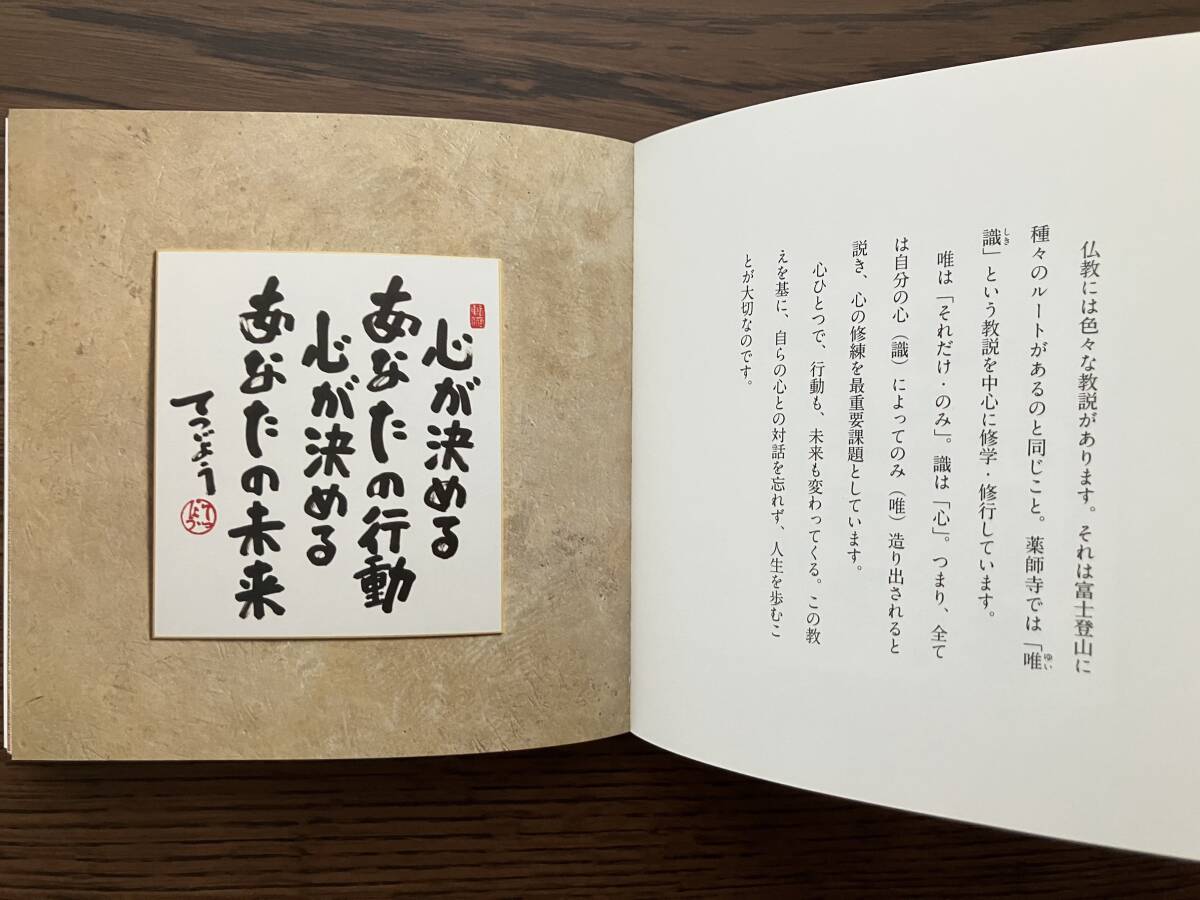 心が決める
あなたの行動
心が決める
あなたの未来
てつじょう
仏教には色々な教説があります。それは富士登山に
種々のルートがあるのと同じこと。薬師寺では「唯
ゆい
識」という教説を中心に修学・修行しています。
しき
唯は「それだけ・のみ」。識は「心」。つまり、全て
は自分の心（識）によってのみ（唯）造り出されると
説き、心の修練を最重要課題としています。
心ひとつで、行動も、未来も変わってくる。この教
えを基に、自らの心との対話を忘れず、人生を歩むこ
とが大切なのです。